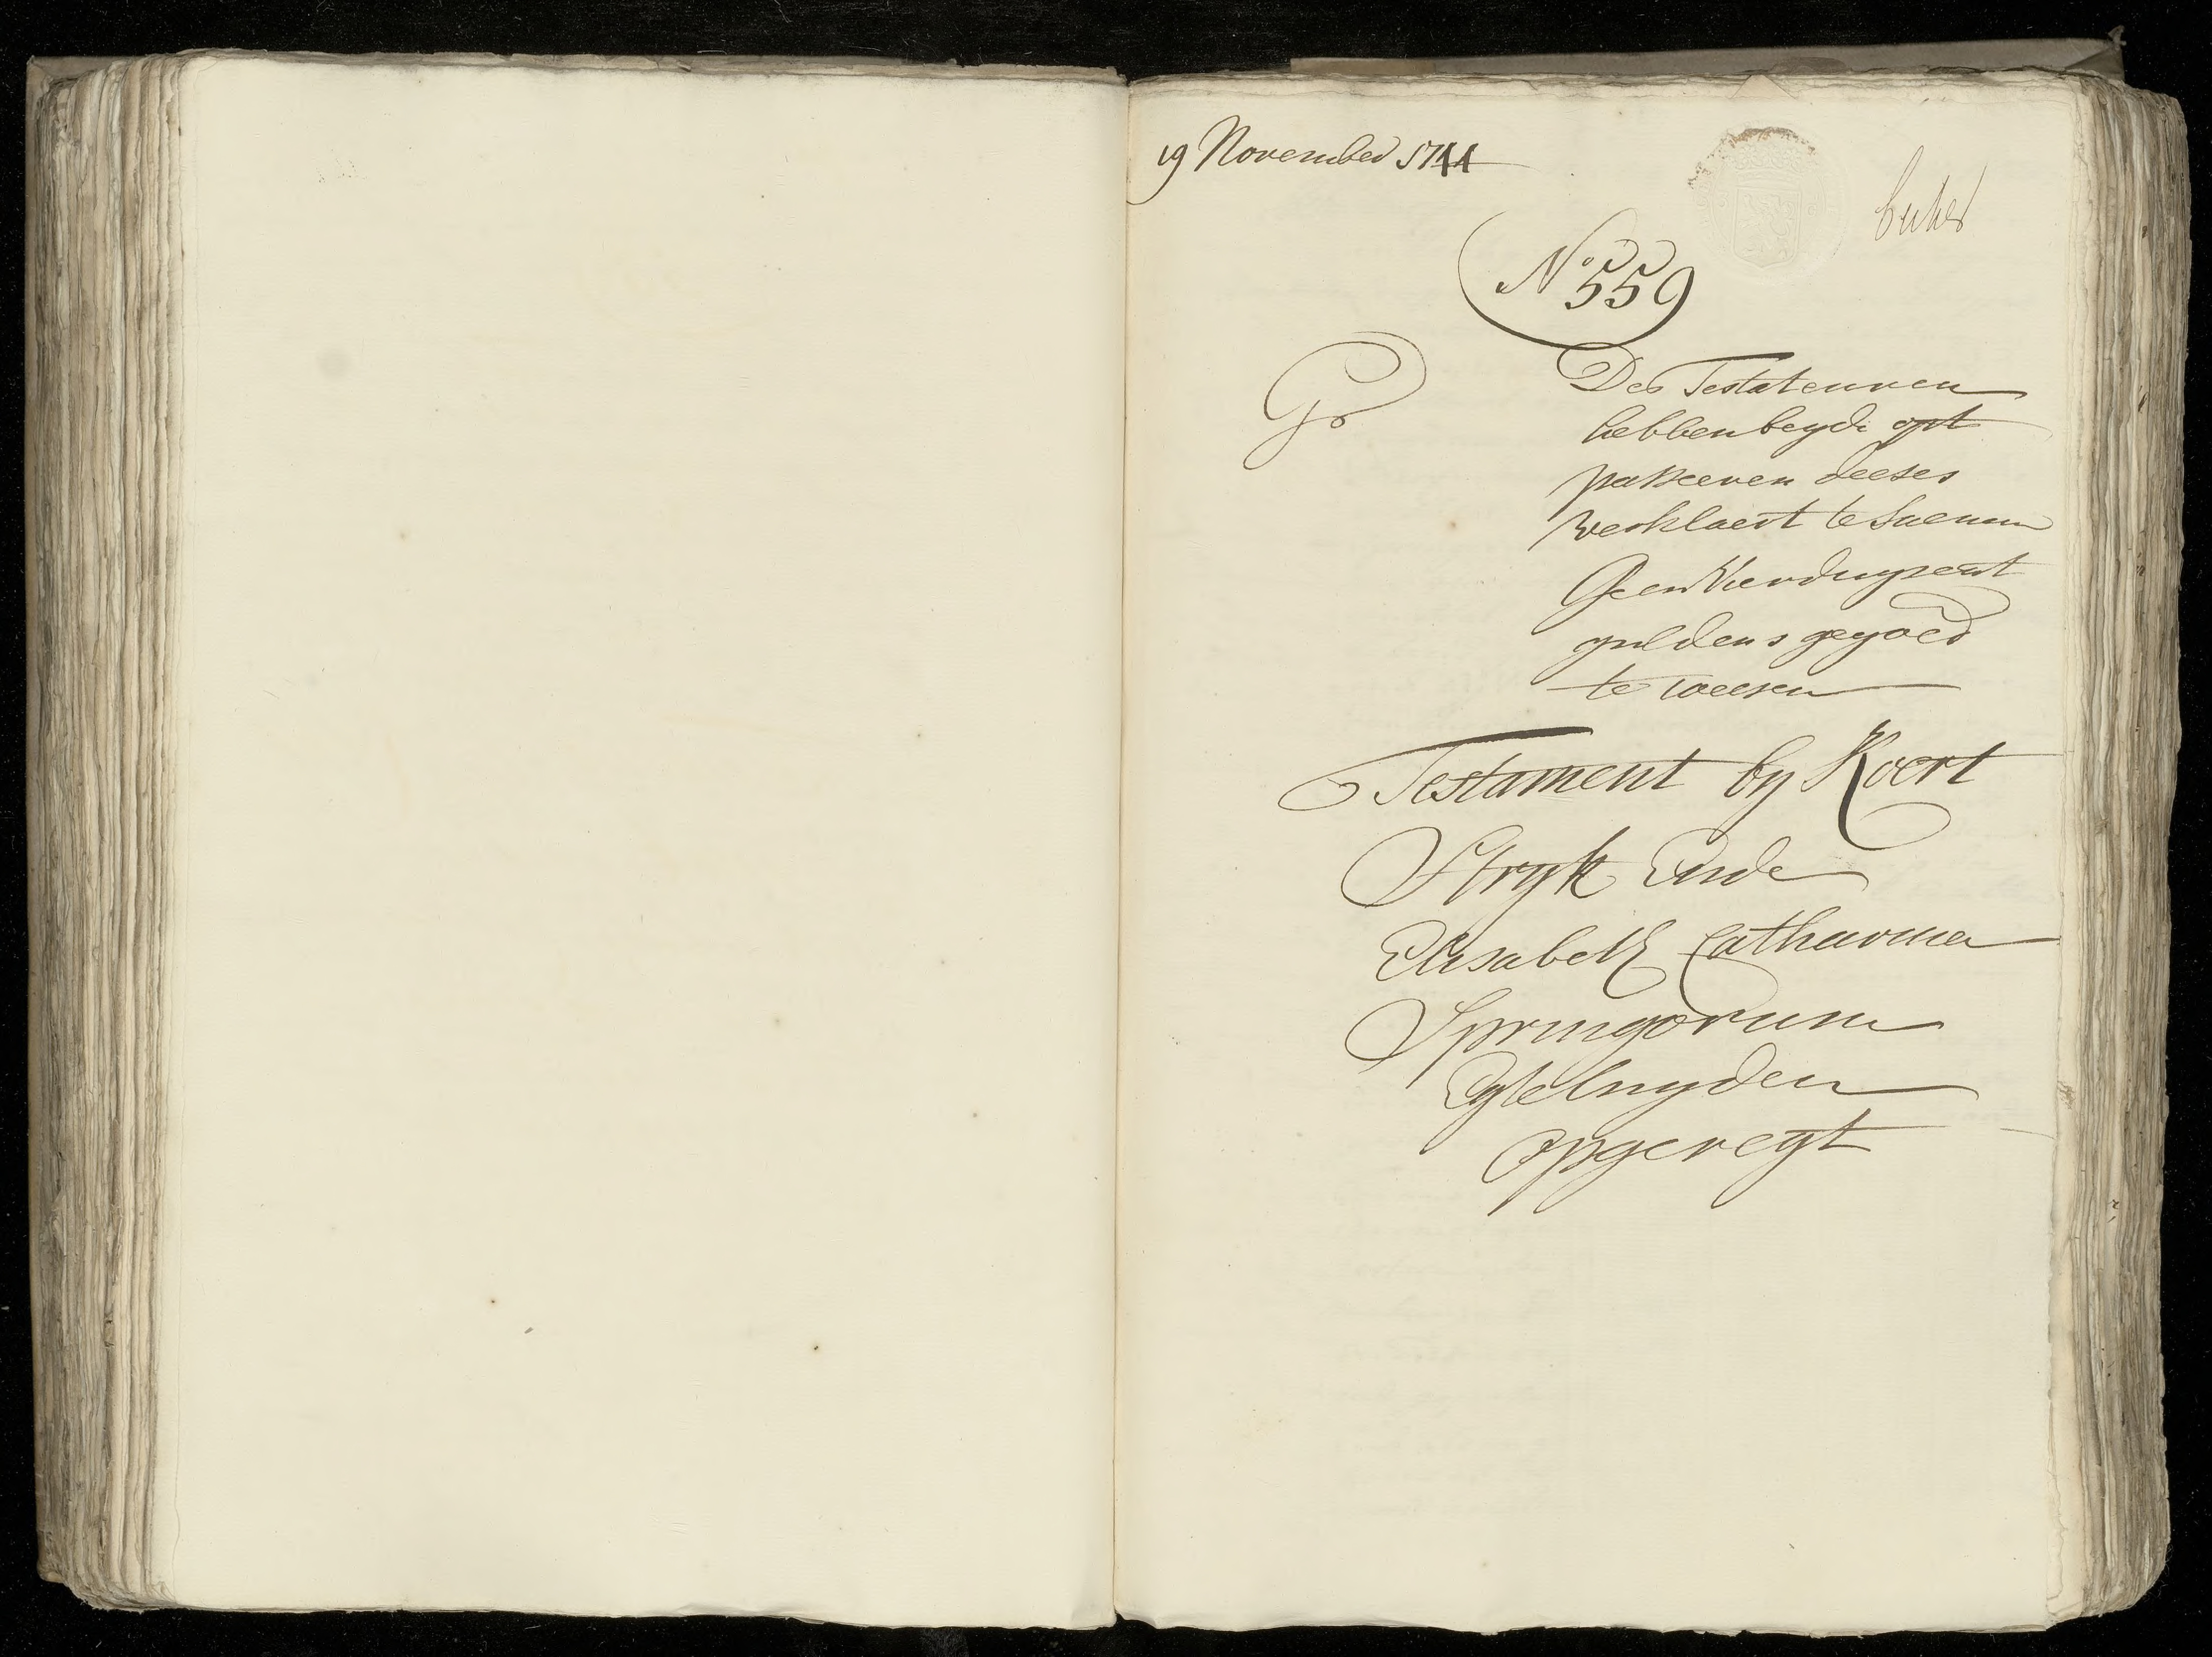 19 November 1744
No. 559
Des Testateuren
hebben beyde opt
passeeren deeses
verklaert te Saemen
Geen Vierduysent
guldens gegoed
te weesen
Testament by Koert
Stryk Ende
Elisabeth Catharina
Springorum
Egteluyden
opgeregt